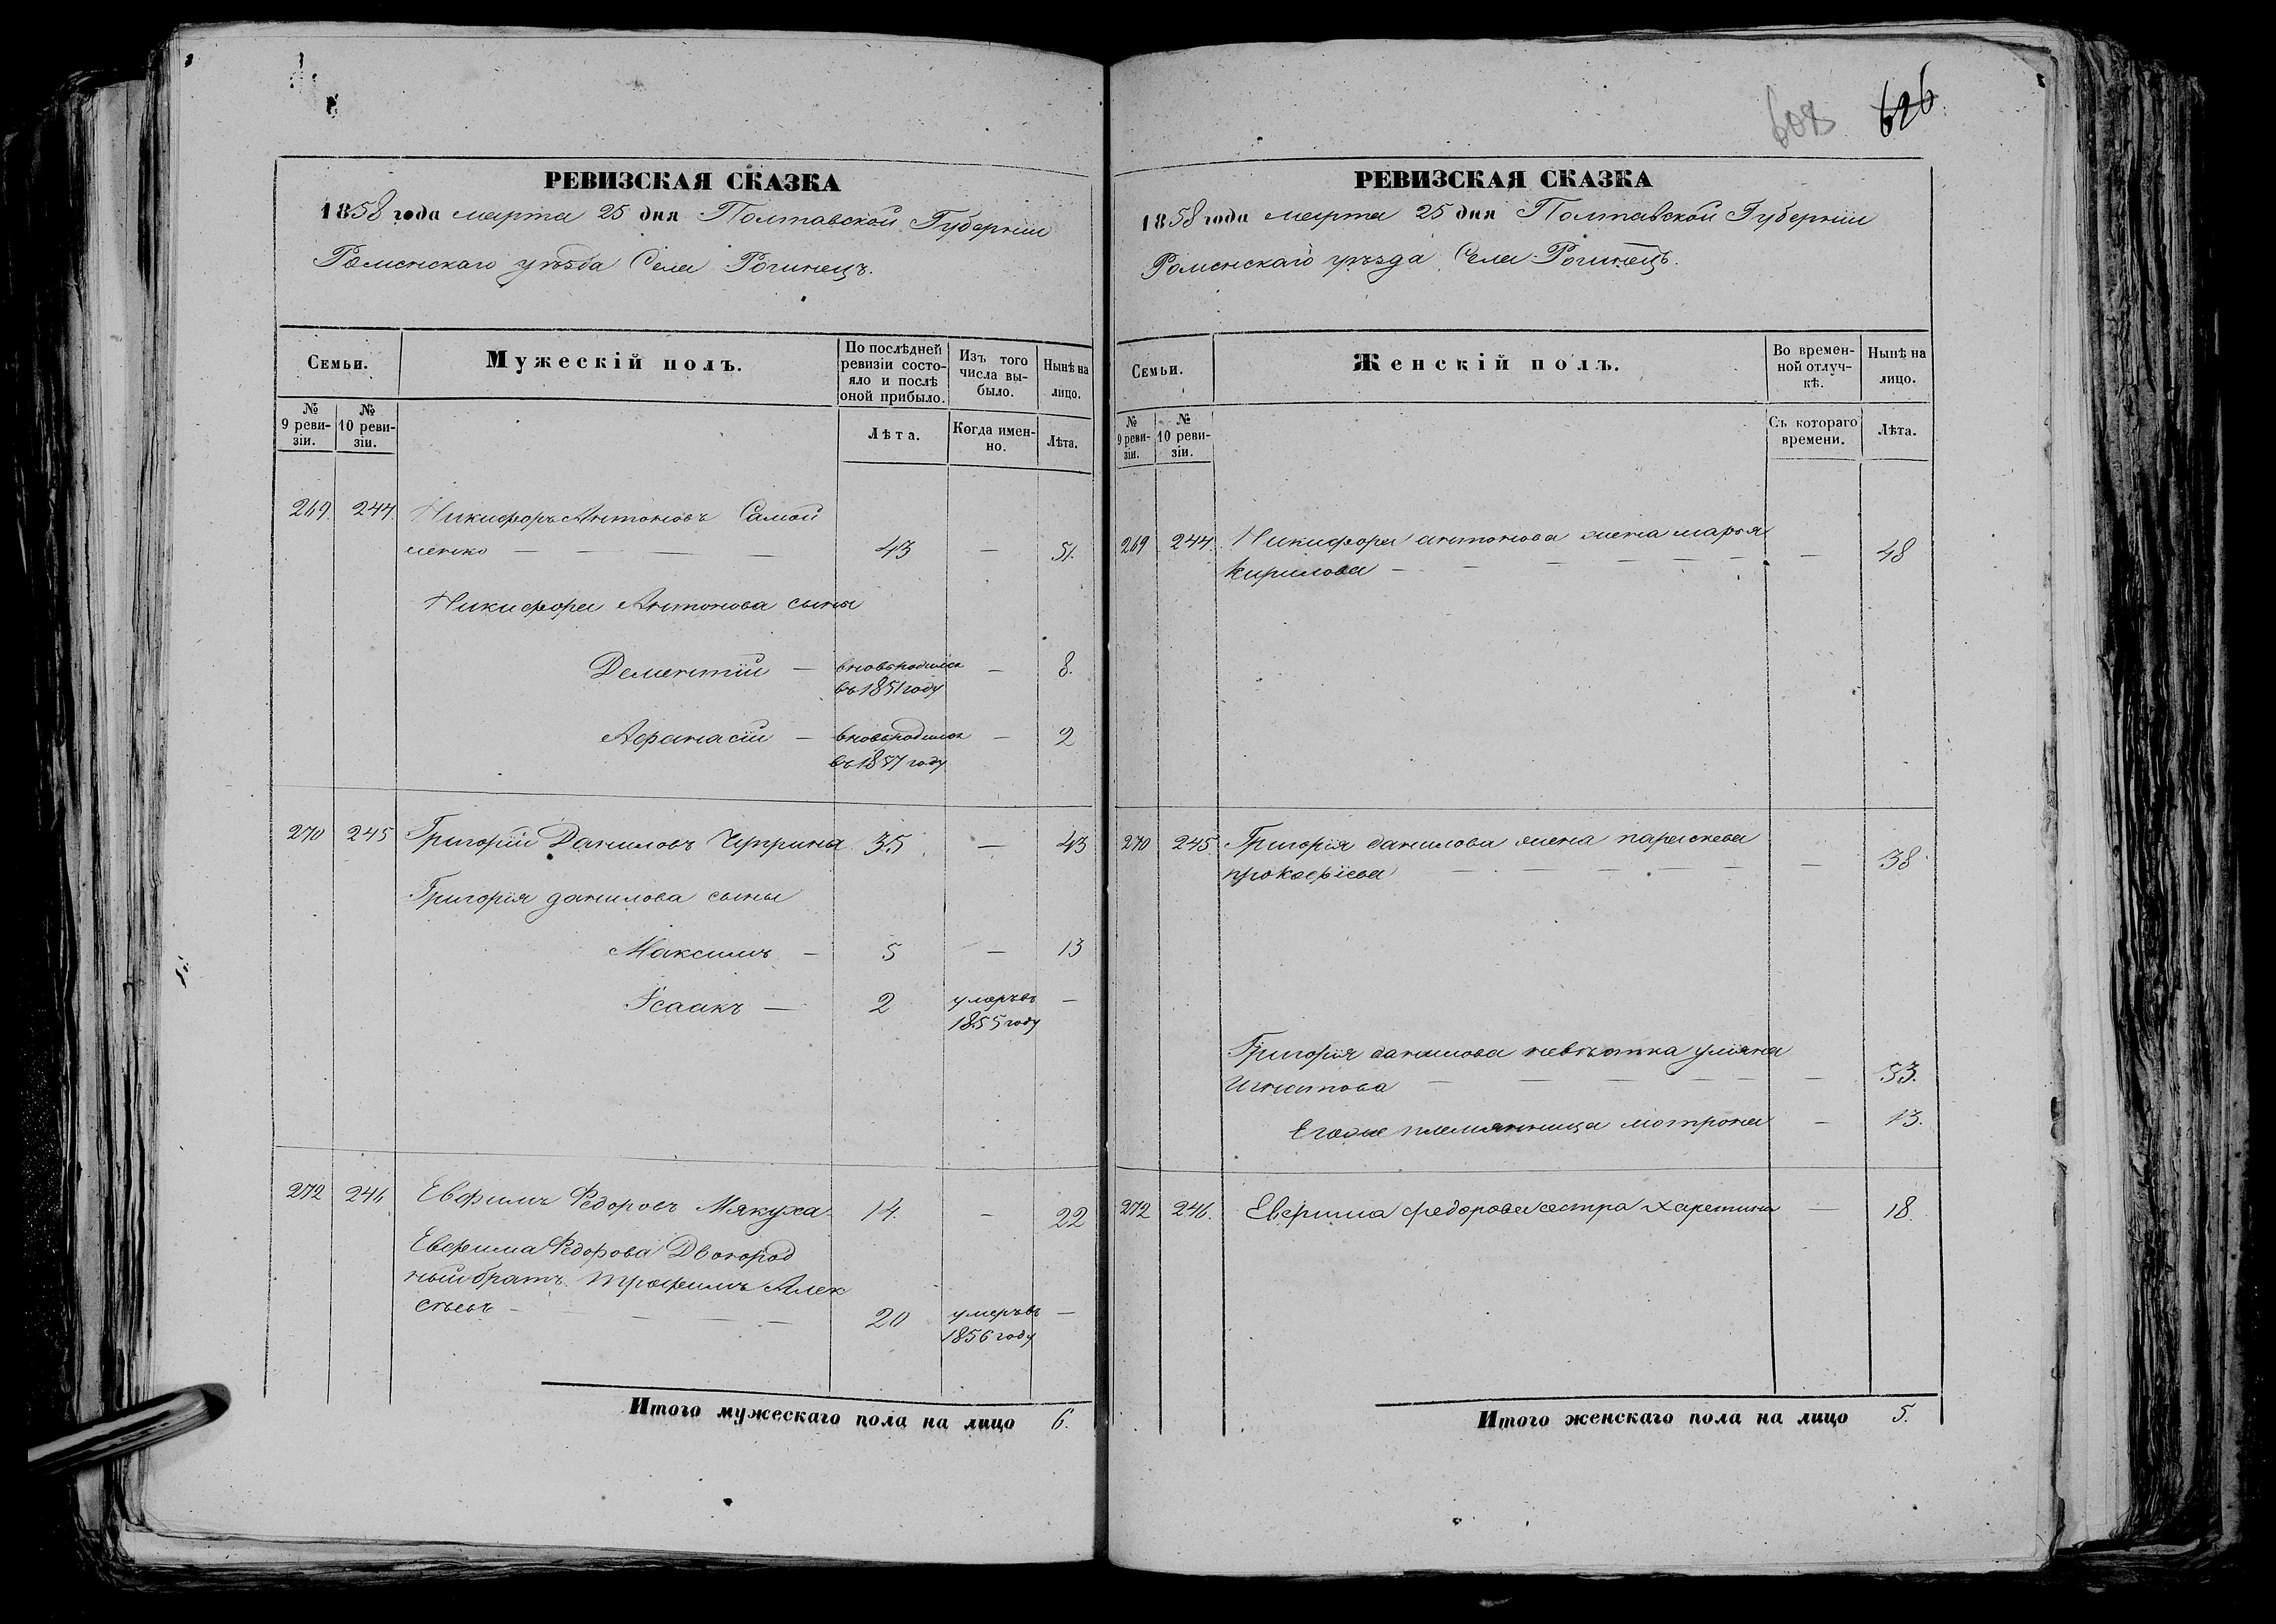 РЕВИЗСКАЯ СКАЗКА
1858 года марта 25 дня Полтавской Губерніи
Роменскаго уѣзда Села Рогинецъ.
Семьи.
Мужескій полъ.
По послѣдней ревизіи состо-
яло и послѣ
оной прибыло.
Изъ того
числа вы-
было.
Нынѣ на
лицо.
№
9 реви-
зіи.
№
10 реви-
зіи.
Лѣта.
Когда имен-
но.
Лѣта.
269. 244. Никифоръ Антоновъ Самой
ленко — 43 — 51.
Никифора Антонова сыны
Дементій — вновьродился
въ 1851 году — 8.
Афанасій — вновьродился
въ 1857 году — 2
270 245 Григорій Даниловъ 35. — 43
Григорія данилова сыны
Максимъ — 5 — 13
Ісаакъ — 2 умеръ въ
1855 году —
272 246 Евфимъ Федоровъ Мякуха 14. — 22
Евфима Федорова Двоюрод
ный братъ Трофимъ Алек
сѣевъ — 20 умеръ въ
1856 году —
Итого мужескаго пола на лицо 6.
608 626
РЕВИЗСКАЯ СКАЗКА
1858 года марта 25 дня Полтавской Губерніи
Роменскаго уѣзда Села Рогинецъ.
Семьи.
Женскій полъ.
Во времен-
ной отлуч-
кѣ.
Нынѣ на
лицо.
№
9 реви-
зіи.
№
10 реви-
зіи.
Съ котораго
времени.
Лѣта.
269 244. Никифора антонова жена марія
кирилова — — 48
270 245. Григорія данилова жена параскева
прокофіева — — 38
Григорія данилова невѣстка уліяна
Игнатова — — 33.
Егоже племянница мотрона — 13.
272 246. Евфима федорова сестра харетина — 18.
Итого женскаго пола на лицо 5.